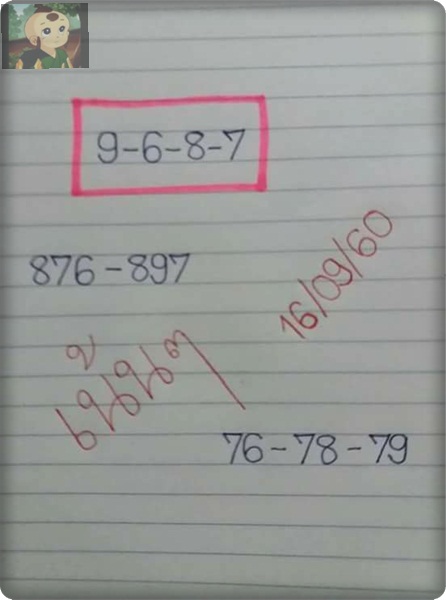 9-6-8-7
876-897
16/09/60
เน้นๆ
76-78-79